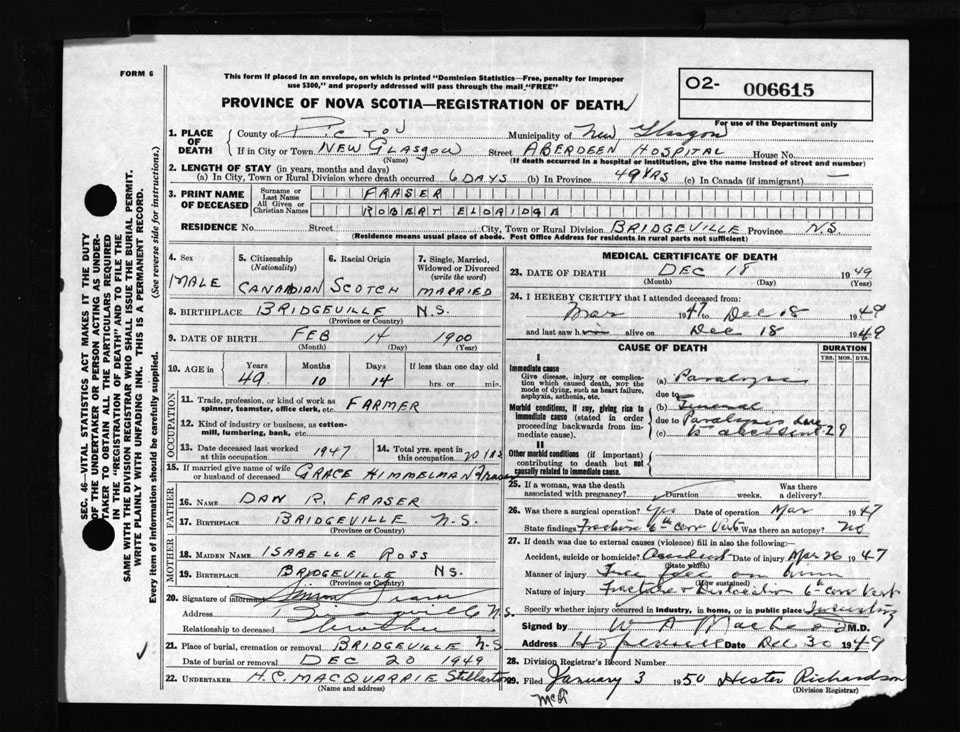 FORM 6
This form if placed in an envelope, on which is printed "Dominion Statistics—Free, penalty for improper
use $300," and properly addressed will pass through the mail "FREE"
PROVINCE OF NOVA SCOTIA—REGISTRATION OF DEATH
O2- 006615
For use of the Department only
1. PLACE OF DEATH
County of Pictou Municipality of New Glasgow
If in City or Town NEW GLASGOW Street ABERDEEN HOSPITAL House No.
(Name) (If death occurred in a hospital or institution, give the name instead of street and number)
2. LENGTH OF STAY (in years, months and days)
(a) In City, Town or Rural Division where death occurred 6 DAYS (b) In Province 49 YRS (c) In Canada (if immigrant) —
3. PRINT NAME OF DECEASED
Surname or Last Name FRASER
All Given or Christian Names ROBERT ELDRIDGE
RESIDENCE No. Street City, Town or Rural Division BRIDGEVILLE Province N.S.
(Residence means usual place of abode. Post Office Address for residents in rural parts not sufficient)
4. Sex MALE
5. Citizenship (Nationality) CANADIAN
6. Racial Origin SCOTCH
7. Single, Married, Widowed or Divorced (write the word) MARRIED
8. BIRTHPLACE BRIDGEVILLE N.S.
(Province or Country)
9. DATE OF BIRTH FEB 14 1900
(Month) (Day) (Year)
10. AGE IN Years Months Days If less than one day old
49 10 14 hrs. or min.
OCCUPATION
11. Trade, profession, or kind of work as spinner, teamster, office clerk, etc. FARMER
12. Kind of industry or business, as cotton-mill, lumbering, bank, etc.
13. Date deceased last worked at this occupation 1947
14. Total yrs. spent in this occupation
15. If married give name of wife or husband of deceased GRACE HIMMELMAN Fraser
FATHER
16. NAME DAN R. FRASER
17. BIRTHPLACE BRIDGEVILLE N.S.
(Province or Country)
MOTHER
18. MAIDEN NAME ISABELLE ROSS
19. BIRTHPLACE BRIDGEVILLE N.S.
(Province or Country)
20. Signature of informant Fraser
Address Bridgeville N.S.
Relationship to deceased Brother
21. Place of burial, cremation or removal BRIDGEVILLE N.S
Date of burial or removal DEC 20 1949
22. UNDERTAKER H.C. MACQUARRIE Stellarton
(Name and address)
MEDICAL CERTIFICATE OF DEATH
23. DATE OF DEATH DEC 18 1949
(Month) (Day) (Year)
24. I HEREBY CERTIFY that I attended deceased from:
Mar 1947 to Dec 18 1949
and last saw him alive on Dec 18 1949
CAUSE OF DEATH
DURATION
YRS. MOS. DYS.
I
Immediate cause
Give disease, injury or complication which caused death, NOT the mode of dying, such as heart failure, asphyxia, asthenia, etc.
(a) Paralysis
due to
Morbid conditions, if any, giving rise to immediate cause (stated in order proceeding backwards from immediate cause).
(b) General
due to Paralysis due
(c) to accident 2 9
II
Other morbid conditions (if important) contributing to death but not causally related to immediate cause.
25. If a woman, was the death associated with pregnancy? Duration weeks. Was there a delivery?
26. Was there a surgical operation? Yes Date of operation Mar 1947
State findings Fracture 6th Cerv Vert Was there an autopsy? No
27. If death was due to external causes (violence) fill in also the following:—
Accident, suicide or homicide? Accident Date of injury Mar 26 1947
(State which)
Manner of injury Tree fell on him
(How sustained)
Nature of injury Fracture & Dislocation 6th Cerv Vert
Specify whether injury occurred in industry, in home, or in public place Industry
Signed by W A MacLeod M.D.
Address Hopewell Date Dec 30 1949
28. Division Registrar's Record Number
29. Filed January 3 1950 Hester Richardson
(Division Registrar)
SEC. 46—VITAL STATISTICS ACT MAKES IT THE DUTY
OF THE UNDERTAKER OR PERSON ACTING AS UNDER-
TAKER TO OBTAIN ALL THE PARTICULARS REQUIRED
IN THE "REGISTRATION OF DEATH" AND TO FILE THE
SAME WITH THE DIVISION REGISTRAR WHO SHALL ISSUE THE BURIAL PERMIT.
WRITE PLAINLY WITH UNFADING INK. THIS IS A PERMANENT RECORD.
Every item of information should be carefully supplied. (See reverse side for instructions.)